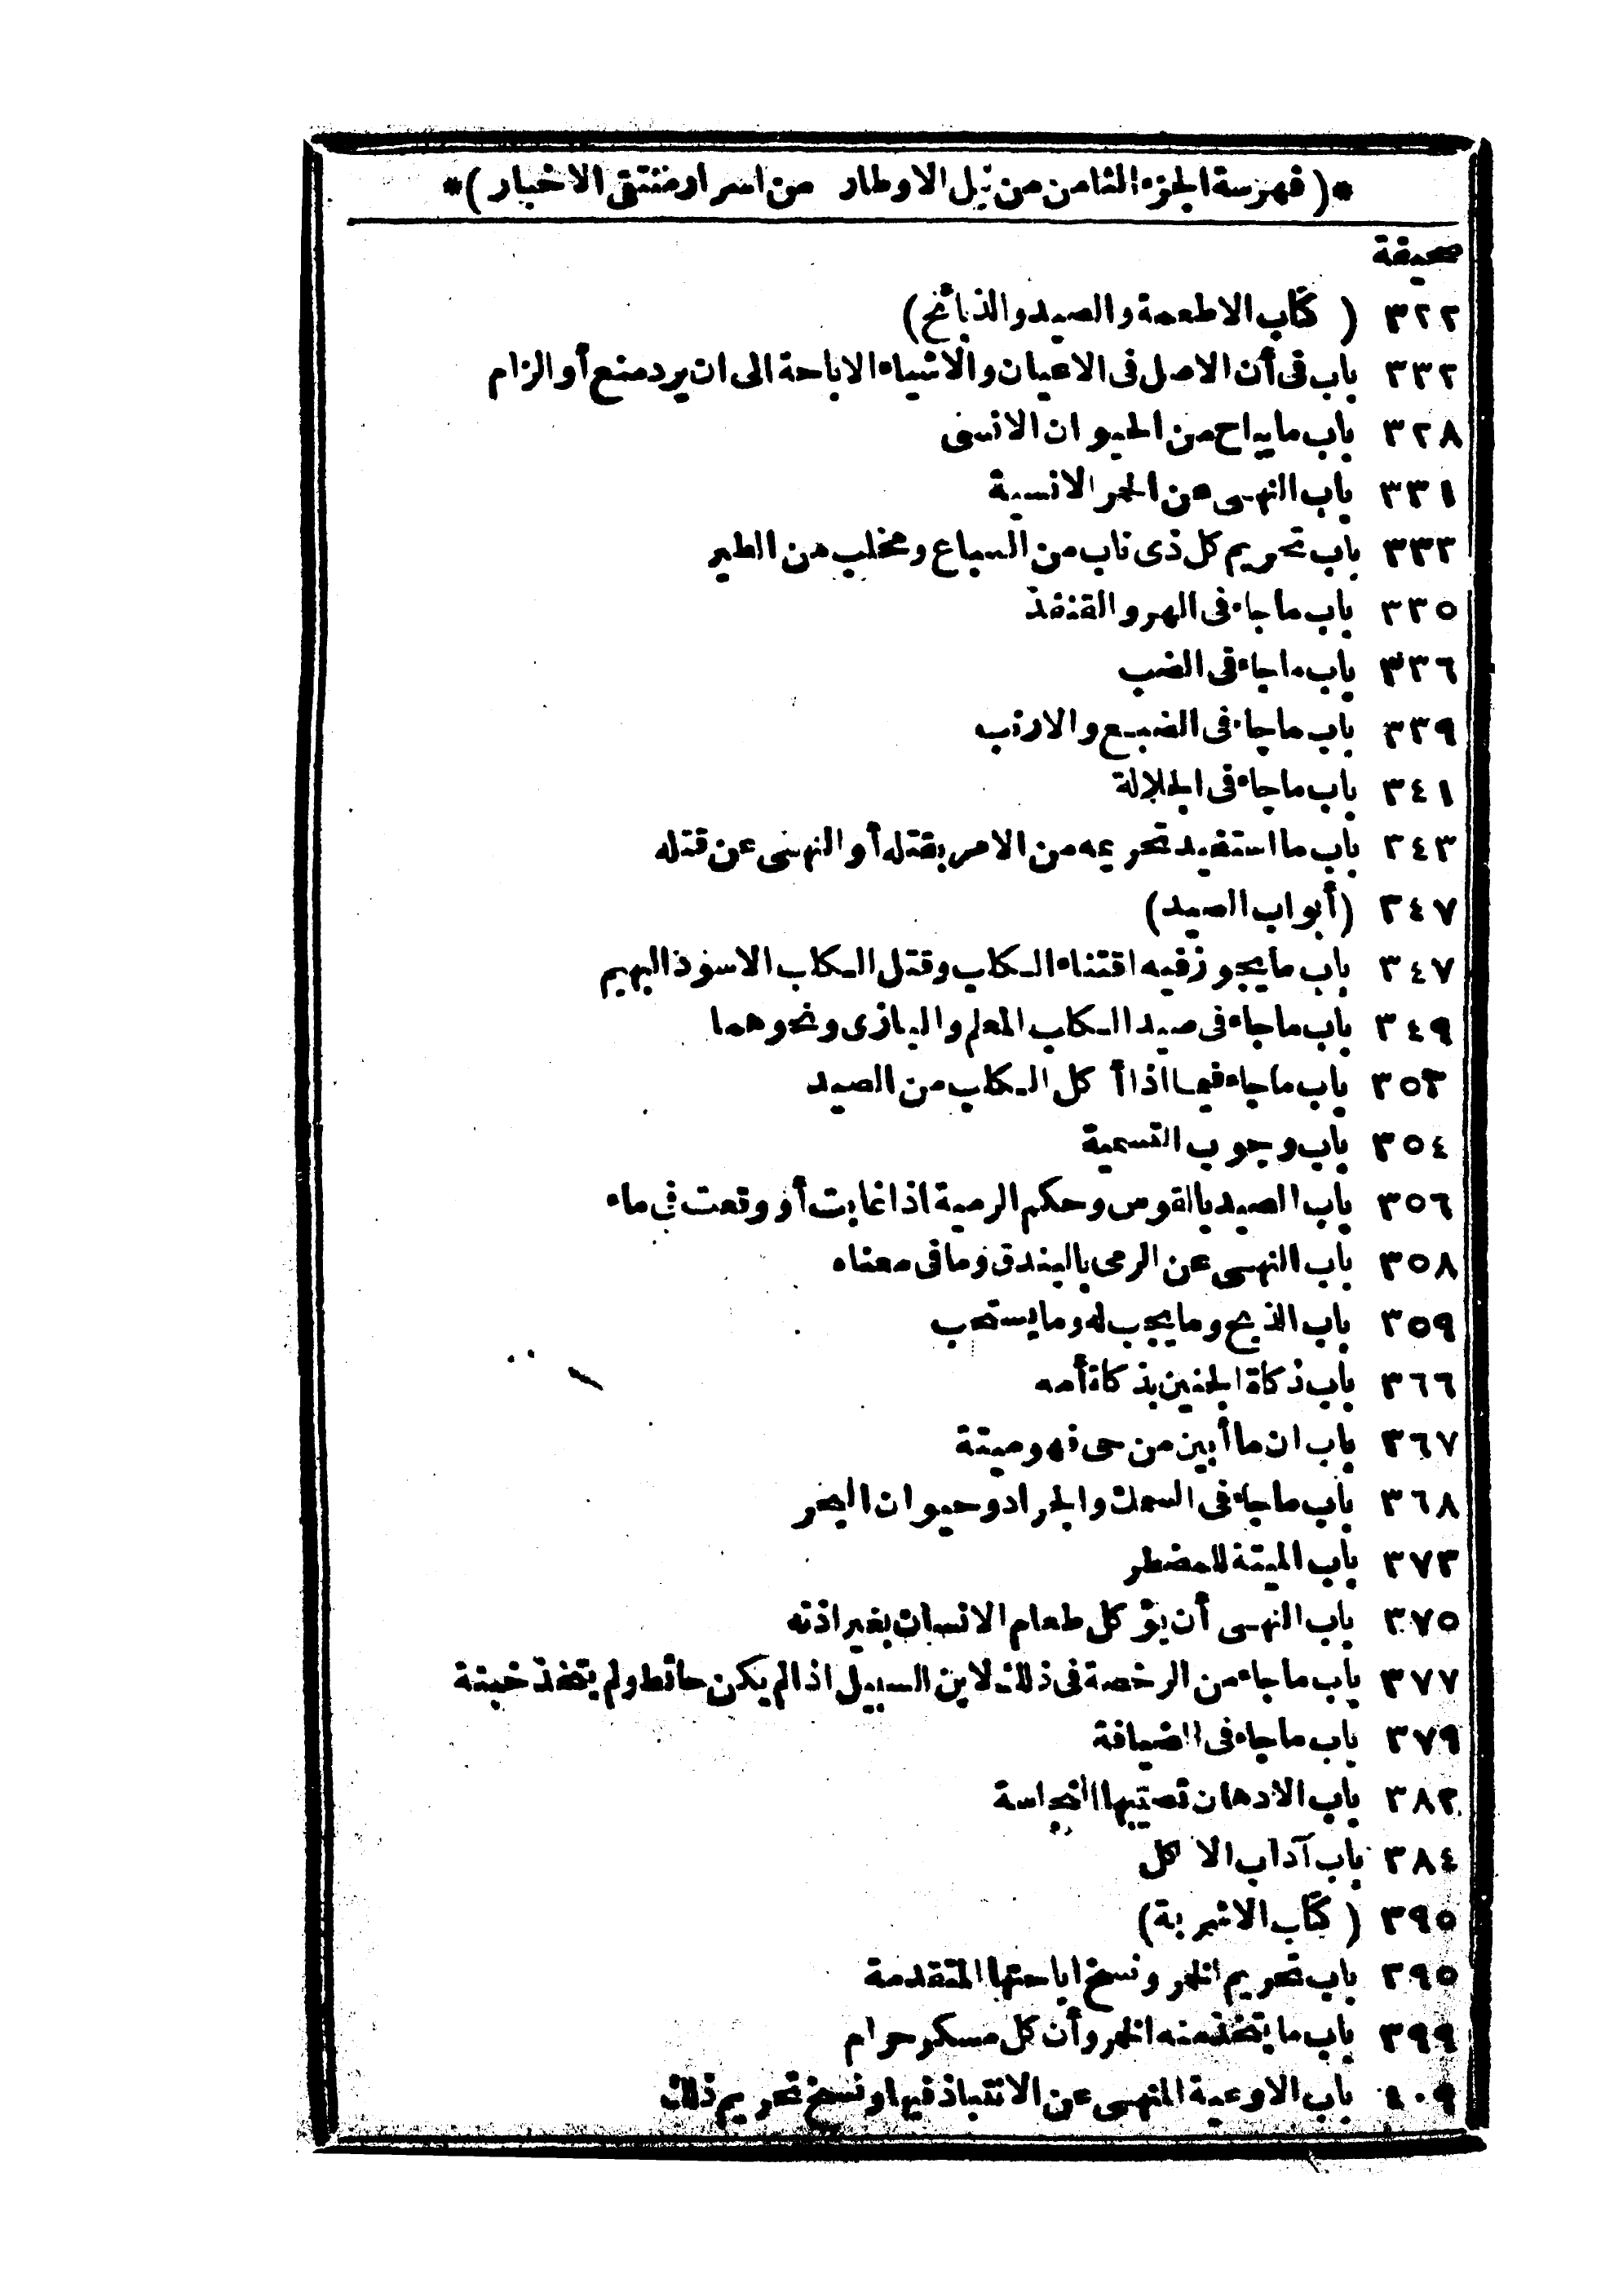 *(فهرسة الجزء الثامن من نيل الاوطار من اسرار منتقى الاخبار)*
صحيفة
٣٢٢ (كتاب الاطعمة والصيد والذبائح)
٣٣٢ باب فى أن الاصل فى الاعيان والاشياء الاباحة الى ان يرد منع أو الزام
٣٢٨ باب ما يباح من الحيوان الانسى
٣٣١ باب النهى عن الحمر الانسية
٣٣٣ باب تحريم كل ذى ناب من السباع ومخلب من الطير
٣٣٥ باب ما جاء فى الهر والقنفذ
٣٣٦ باب ما جاء فى الضب
٣٣٩ باب ما جاء فى الضبع والارنب
٣٤١ باب ما جاء فى الجلالة
٣٤٣ باب ما استفيد تحريمه من الامر بقتله أو النهى عن قتله
٣٤٧ (أبواب الصيد)
٣٤٧ باب ما يجوز فيه اقتناء الكلب وقتل الكلب الاسود البهيم
٣٤٩ باب ما جاء فى صيد الكلب المعلم والبازى ونحوهما
٣٥٣ باب ما جاء فيما اذا أكل الكلب من الصيد
٣٥٤ باب وجوب التسمية
٣٥٦ باب الصيد بالقوس وحكم الرمية اذا غابت أو وقعت فى ماء
٣٥٨ باب النهى عن الرمى بالبندق وما فى معناه
٣٥٩ باب الذبح وما يجب له وما يستحب
٣٦٦ باب ذكاة الجنين بذكاة أمه
٣٦٧ باب ان ما أبين من حى فهو ميتة
٣٦٨ باب ما جاء فى السمك والجراد وحيوان البحر
٣٧٣ باب الميتة للمضطر
٣٧٥ باب النهى أن يؤكل طعام الانسان بغير اذنه
٣٧٧ باب ما جاء من الرخصة فى ذلك لابن السبيل اذا لم يكن حائط ولم يتخذ خبنة
٣٧٩ باب ما جاء فى الضيافة
٣٨٢ باب الادهان تصيبها النجاسة
٣٨٤ باب آداب الاكل
٣٩٥ (كتاب الاشربة)
٣٩٥ باب تحريم الخمر ونسخ اباحتها المتقدمة
٣٩٩ باب ما يتخذ منه الخمر وأن كل مسكر حرام
٤٠٩ باب الاوعية المنهى عن الانتباذ فيها ونسخ تحريم ذلك